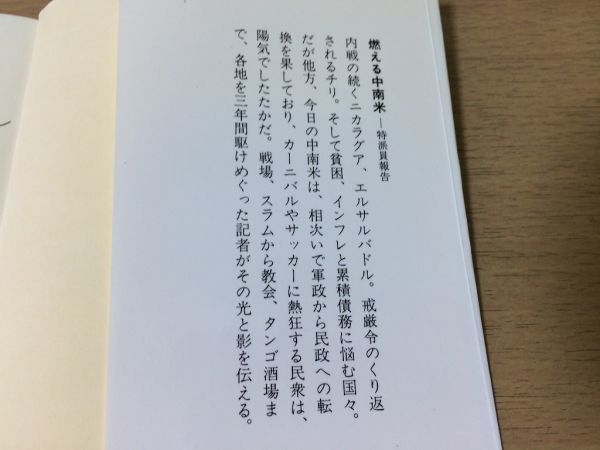 燃える中南米―特派員報告
内戦の続くニカラグア、エルサルバドル。戒厳令のくり返
されるチリ。そして貧困、インフレと累積債務に悩む国々。
だが他方、今日の中南米は、相次いで軍政から民政への転
換を果しており、カーニバルやサッカーに熱狂する民衆は、
陽気でしたたかだ。戦場、スラムから教会、タンゴ酒場ま
で、各地を三年間駆けめぐった記者がその光と影を伝える。